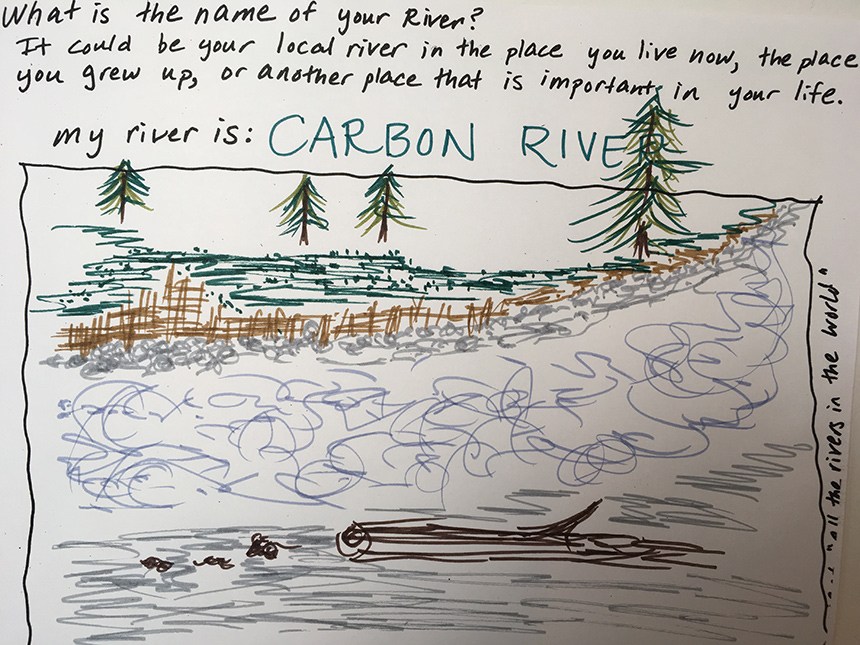 What is the name of your River?
It could be your local river in the place you live now, the place
you grew up, or another place that is important in your life.
my river is: CARBON RIVER
"all the rivers in the world"